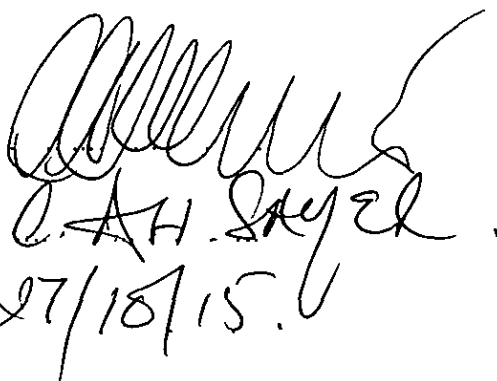 C. A H. SAYER.
27/10/15.